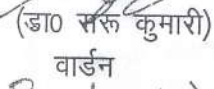 (डा0 सरू कुमारी)
वार्डन